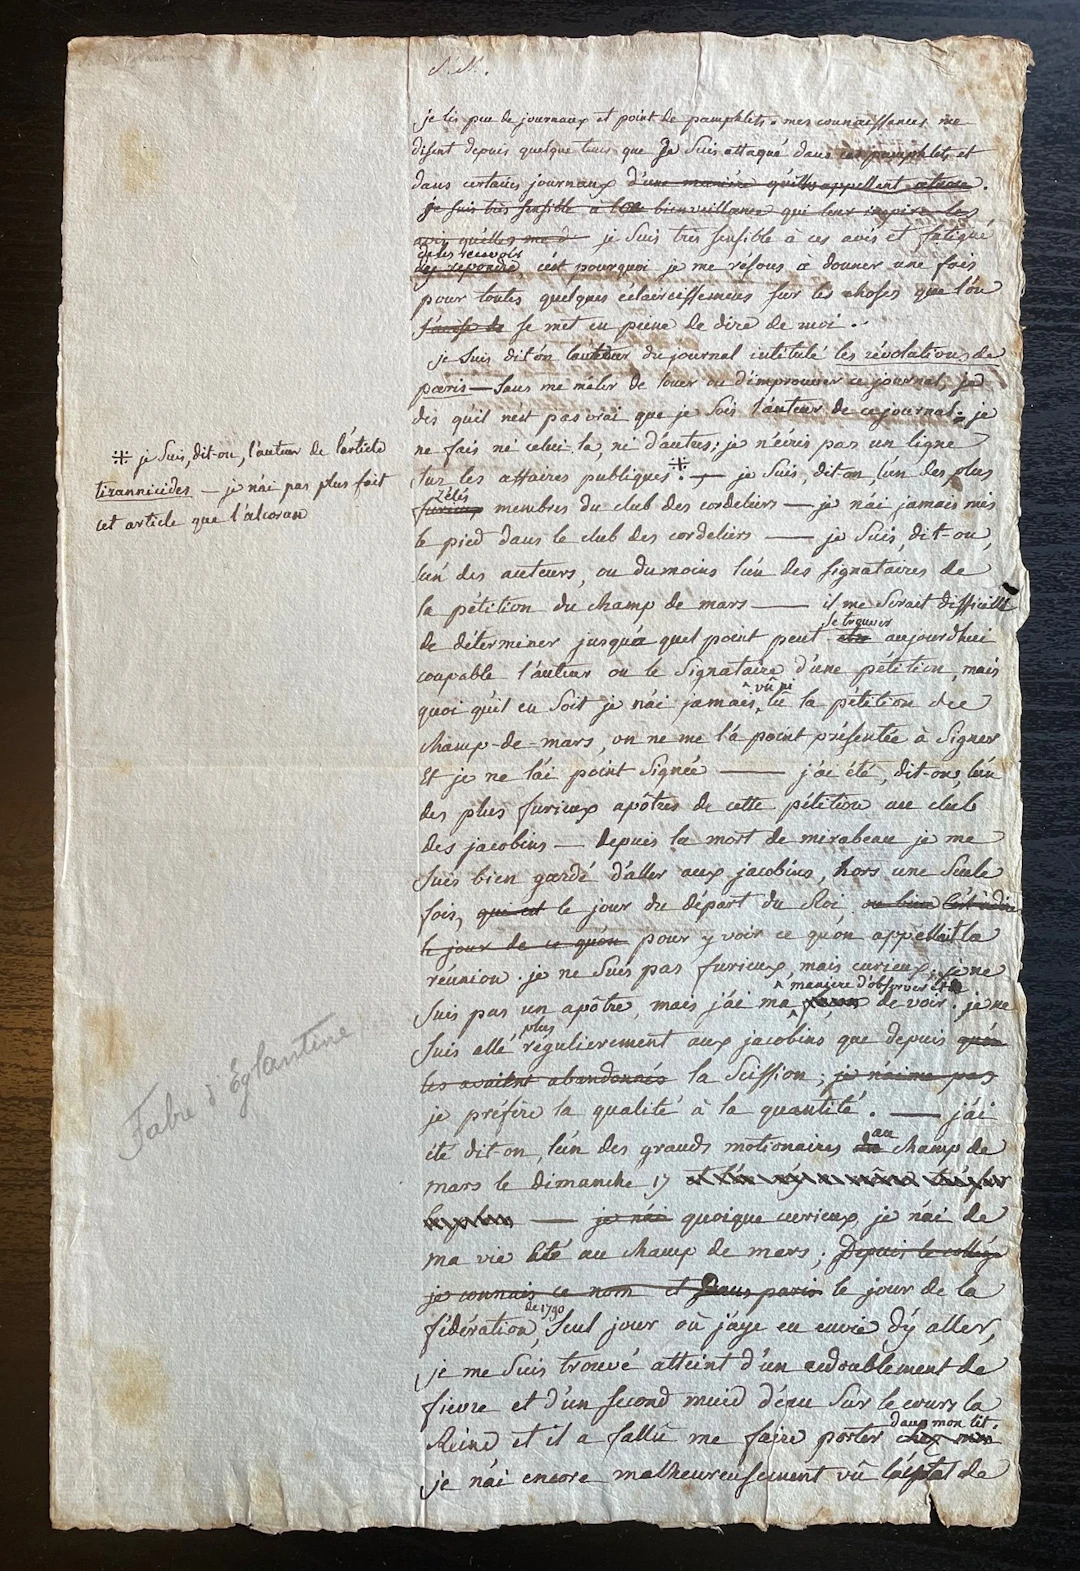 je lis peu de journaux et point de pamphlets. mes connaissances me
disent depuis quelque tems que je suis attaqué dans ces pamphlets et
dans certains journaux d'une manière qu'ils appellent atroce.
je suis très sensible à la bienveillance qui leur inspire les
avis qu'elles me d je suis très sensible à ces avis et fatigué
de les recevoir
des répondre, c'est pourquoi je me résous à donner une fois
pour toutes quelques éclaircissemens sur les choses que l'on
s'avise de se met en peine de dire de moi.
je suis dit-on l'auteur du journal intitulé les révolutions de
paris — sans me mêler de louer ou d'improuver ce journal, je
dis qu'il n'est pas vrai que je sois l'auteur de ce journal; je
ne fais ni celui-la, ni d'autres; je n'écris pas un ligne
sur les affaires publiques. ※ — je suis, dit-on, l'un des plus
zélés
furieux membres du club des cordeliers — je n'ai jamais mis
le pied dans le club des cordeliers — je suis, dit-on,
l'un des auteurs, ou du moins l'un des signataires de
la pétition du champ de mars — il me serait difficile
se trouver
de déterminer jusqu'à quel point peut être aujourd'hui
coupable l'auteur ou le signataire d'une pétition, mais
vû ni
quoi qu'il en soit je n'ai jamais lu la pétition du
champ-de-mars, on ne me l'a point présentée à signer
Et je ne l'ai point signée — j'ai été, dit-on, l'un
des plus furieux apôtres de cette pétition au club
des jacobins — depuis la mort de mirabeau je me
suis bien gardé d'aller aux jacobins, hors une seule
fois, qui est le jour du départ du Roi ou bien c'est à dire
le jour de ce qu'on pour y voir ce qu'on appellait la
réunion. je ne suis pas furieux, mais curieux; je ne
manière d'observer et
suis pas un apôtre, mais j'ai ma façon de voir. je ne
plus
suis allé régulierement aux jacobins que depuis qu'on
les avaient abandonnés la scission; je n'aime pas
je préfère la qualité à la quantité. — j'ai
au
été dit on, l'un des grands motionaires du champ de
mars le dimanche 17
— je n'ai quoique curieux je n'ai de
ma vie été au champ de mars; Depuis le collège
je connais ce nom et dans paris le jour de la
de 1790
fédération, seul jour où j'aye eu envie d'y aller,
je me suis trouvé atteint d'un redoublement de
fievre et d'un second muid d'eau sur le cours la
dans mon lit.
Reine et il a fallu me faire porter chez moi
je n'ai encore malheureusement vû l'autel de
※ je suis, dit-on, l'auteur de l'article
tirannicides — je n'ai pas plus fait
cet article que l'alcoran
Fabre d'Eglantine